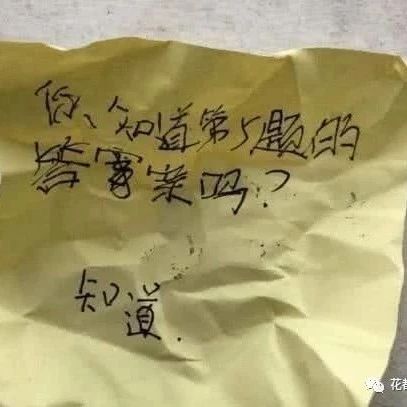 你、知道第5题的
答案吗?
知
道.
花都